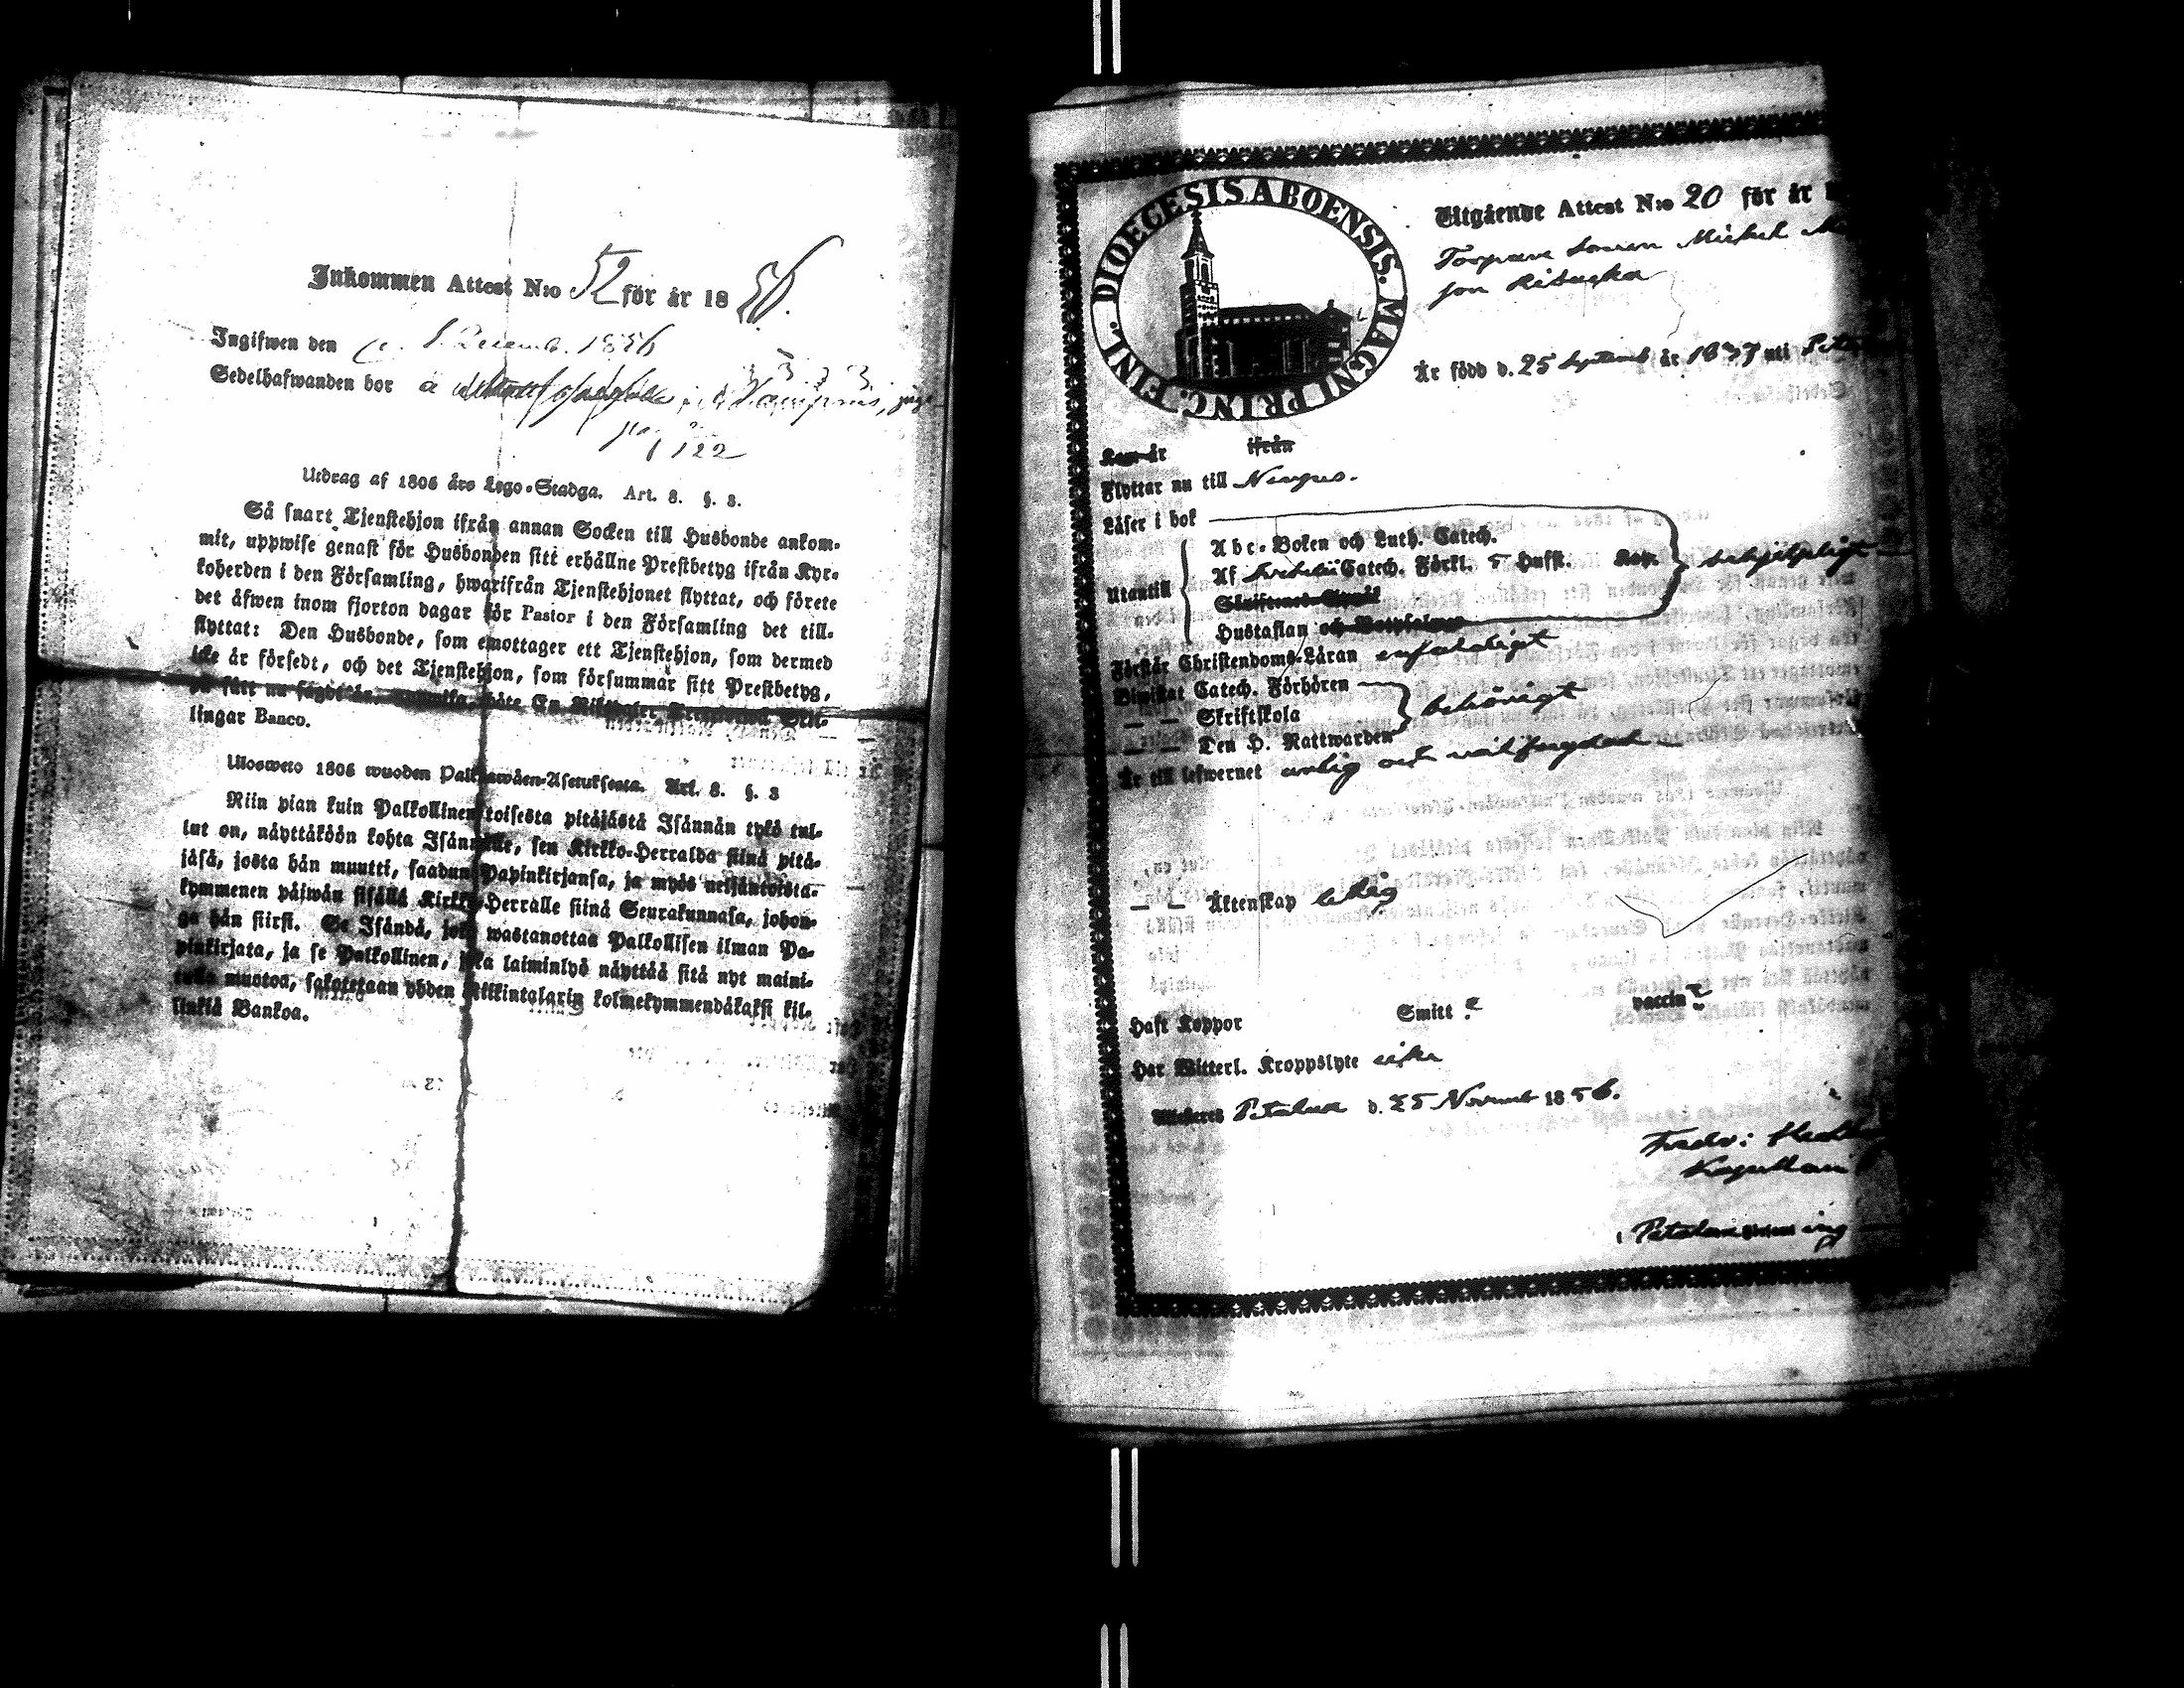 Inkommen Attest N:o 52 för år 1856.
Ingifwen den 1 Decemb. 1856
Sedelhafwanden bor å
122
Utdrag af 1806 års Lego-Stadga. Art. 8. §. 8.
Så snart Tjenstehjon ifrån annan Socken till Husbonde ankom-
mit, uppwise genast för Husbonden sitt erhållne Prestbetyg ifrån Kyr-
koherden i den Församling, hwarifrån Tjenstehjonet flyttat, och förete
det äfwen inom fjorton dagar för Pastor i den Församling det till-
flyttat: Den Husbonde, som emottager ett Tjenstehjon, som dermed
icke är försedt, och det Tjenstehjon, som försummar sitt Prestbetyg,
på sätt nu sagdt är,
lingar Banco.
Ulosweto 1806 wuoden Palkkawäen-Asetuksesta. Art. 8. §. 8
Niin pian kuin Palkollinen toisesta pitäjästä Isännän tykö tul-
lut on, näyttäköön kohta Isännälle, sen Kirkko-Herralda siinä pitä-
jäsä, josta hän muutti, saadun Papinkirjansa, ja myös neljäntoista-
kymmenen päiwän sisällä Kirkko-Herralle siinä Seurakunnasa, johon-
ga hän siirsi. Se Isändä, joka wastanottaa Palkollisen ilman Pa-
pinkirjata, ja se Palkollinen, joka laiminlyö näyttää sitä nyt maini-
tulla muotoa, sakotetaan yhden Riikintalarin kolmekymmendäkaksi kil-
linkiä Bankoa.
DIOECESIS ABOENSIS. MAGNI PRINC. FINL.
Utgående Attest N:o 20 för år
Torpare Sonen Michel
son
Är född d. 25 Septemb år 1837 uti
Kom år ifrån
Flyttar nu till
Läser i bok
Abc-Boken och Luth. Catech.
Utantill
Af Catech. Förkl. 5 Hufst.
behjelpligt
Skriftenes Språk
Hustaflan och Botpsalmer
Förstår Christendoms-Läran enfaldigt
Biwistat Catech. Förhören
— — Skriftskola
behörigt
— — Den H. Nattwarden
Är till lefwernet ärlig och välfrejdad
— — Äktenskap ledig
Haft Koppor Smitt vaccin
Har Witterl. Kroppslyte icke
Attesteres Petalax d. 25 Novemb 1856.
Fredr:
Kapellan
i Petalax